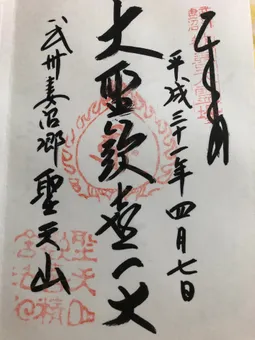 奉拝
平成三十一年四月七日
大聖歓喜天
武州妻沼郷 聖天山